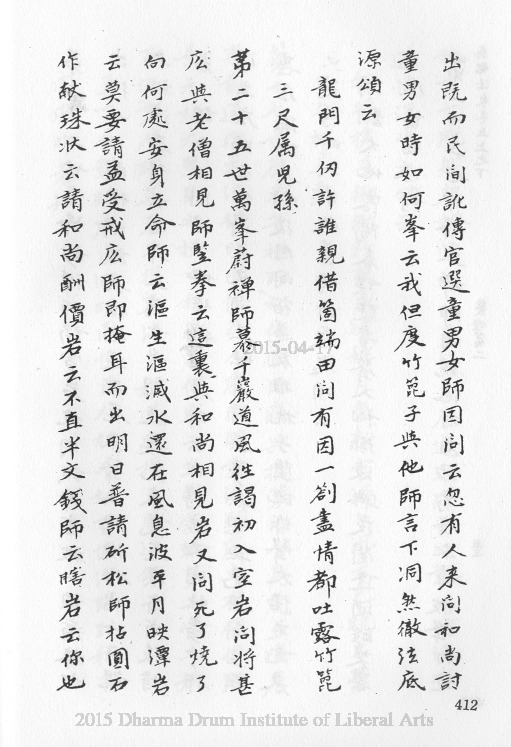 出既而民间訛傳官選童男女師因问云忽有人来问和尚討
童男女時如何峯云我但度竹箆子與他師言下洞然徹法底
源頌云
龍門千仞許誰親借箇端由问有因一劄盡情都吐露竹箆
三尺属児孫
第二十五世萬峯蔚禅師慕千巖道風徃謁初入室岩问将甚
庅與老僧相見師竪拳云這裏與和尚相見岩又问死了燒了
向何處安身立命師云漚生漚滅水還在風息波平月映潭岩
云莫要請益受戒庅師即掩耳而出明日普請斫松師拈圓石
作献珠状云請和尚酬價岩云不直半文錢師云瞎岩云你也
412
2015-04-17
2015 Dharma Drum Institute of Liberal Arts